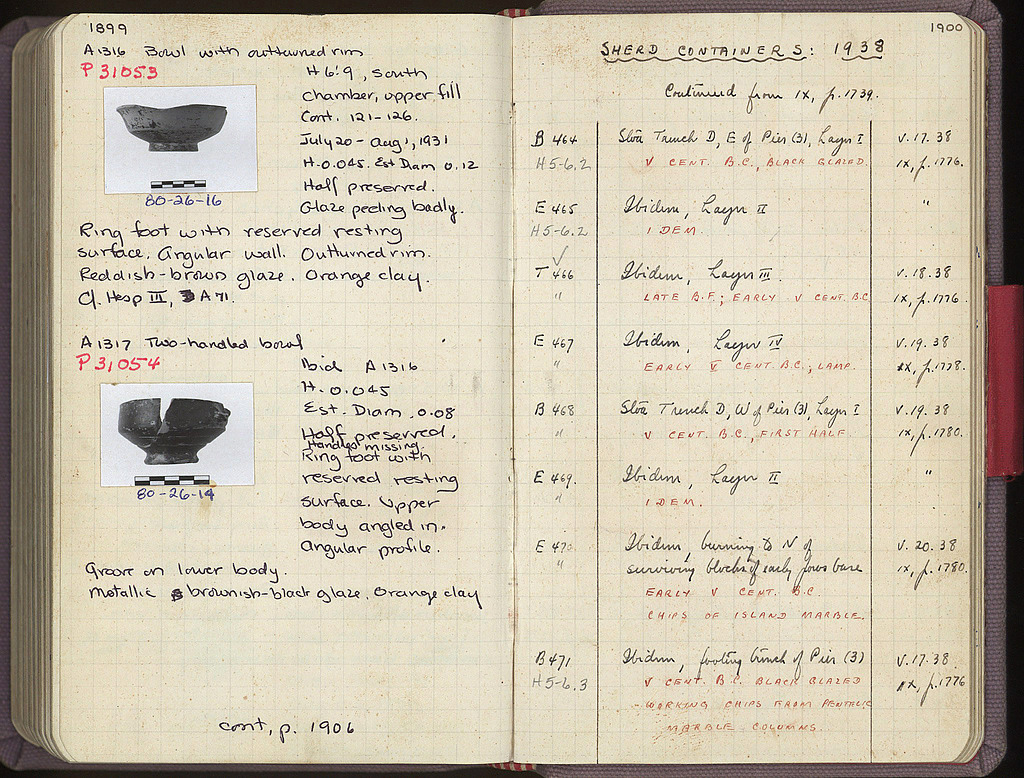 1899
A 1316 Bowl with outturned rim
P 31053
H 6:9, south
chamber, upper fill
Cont. 121-126.
July 20 - Aug 1, 1931
H. 0.045. Est Diam 0.12
Half preserved.
Glaze peeling badly.
80-26-16
Ring foot with reserved resting
surface. Angular wall. Outturned rim.
Reddish-brown glaze. Orange clay.
Cf. Hesp III, A 71.
A 1317 Two-handled bowl
P 31054
Ibid A 1316
H. 0.045
Est. Diam. 0.08
Half preserved.
Handles missing.
Ring foot with
reserved resting
surface. Upper
body angled in.
Angular profile.
80-26-14
Groove on lower body.
Metallic brownish-black glaze. Orange clay
cont, p. 1906
1900
SHERD CONTAINERS: 1938
Continued from IX, p. 1739.
B 464 Stoa Trench D, E of Pier (3), Layer I V. 17. 38
H5-6.2 V CENT. B.C., BLACK GLAZED. IX, p. 1776.
E 465 Ibidem, Layer II "
H5-6.2 IDEM.
✓
T 466 Ibidem, Layer III. V. 18. 38
" LATE B.F.; EARLY V CENT. B.C. IX, p. 1776.
E 467 Ibidem, Layer IV V. 19. 38
" EARLY V CENT. B.C.; LAMP. IX, p. 1778.
B 468 Stoa Trench D, W of Pier (3), Layer I V. 19. 38
" V CENT. B.C., FIRST HALF. IX, p. 1780.
E 469. Ibidem, Layer II "
" IDEM.
E 470 Ibidem, burning to N of V. 20. 38
" surviving blocks of early poros base IX, p. 1780.
EARLY V CENT. B.C.
CHIPS OF ISLAND MARBLE.
B 471 Ibidem, footing trench of Pier (3) V. 17. 38
H5-6.3 V CENT. B.C. BLACK GLAZED IX, p. 1776
WORKING CHIPS FROM PENTELIC
MARBLE COLUMNS.